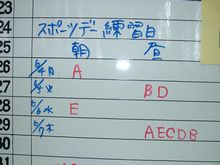 23
24 スポーツデー練習日
25 朝 昼
26 6/4月 A
27 6/5火 BD
28 6/6水 E
29 6/7木 AECDB
30
31